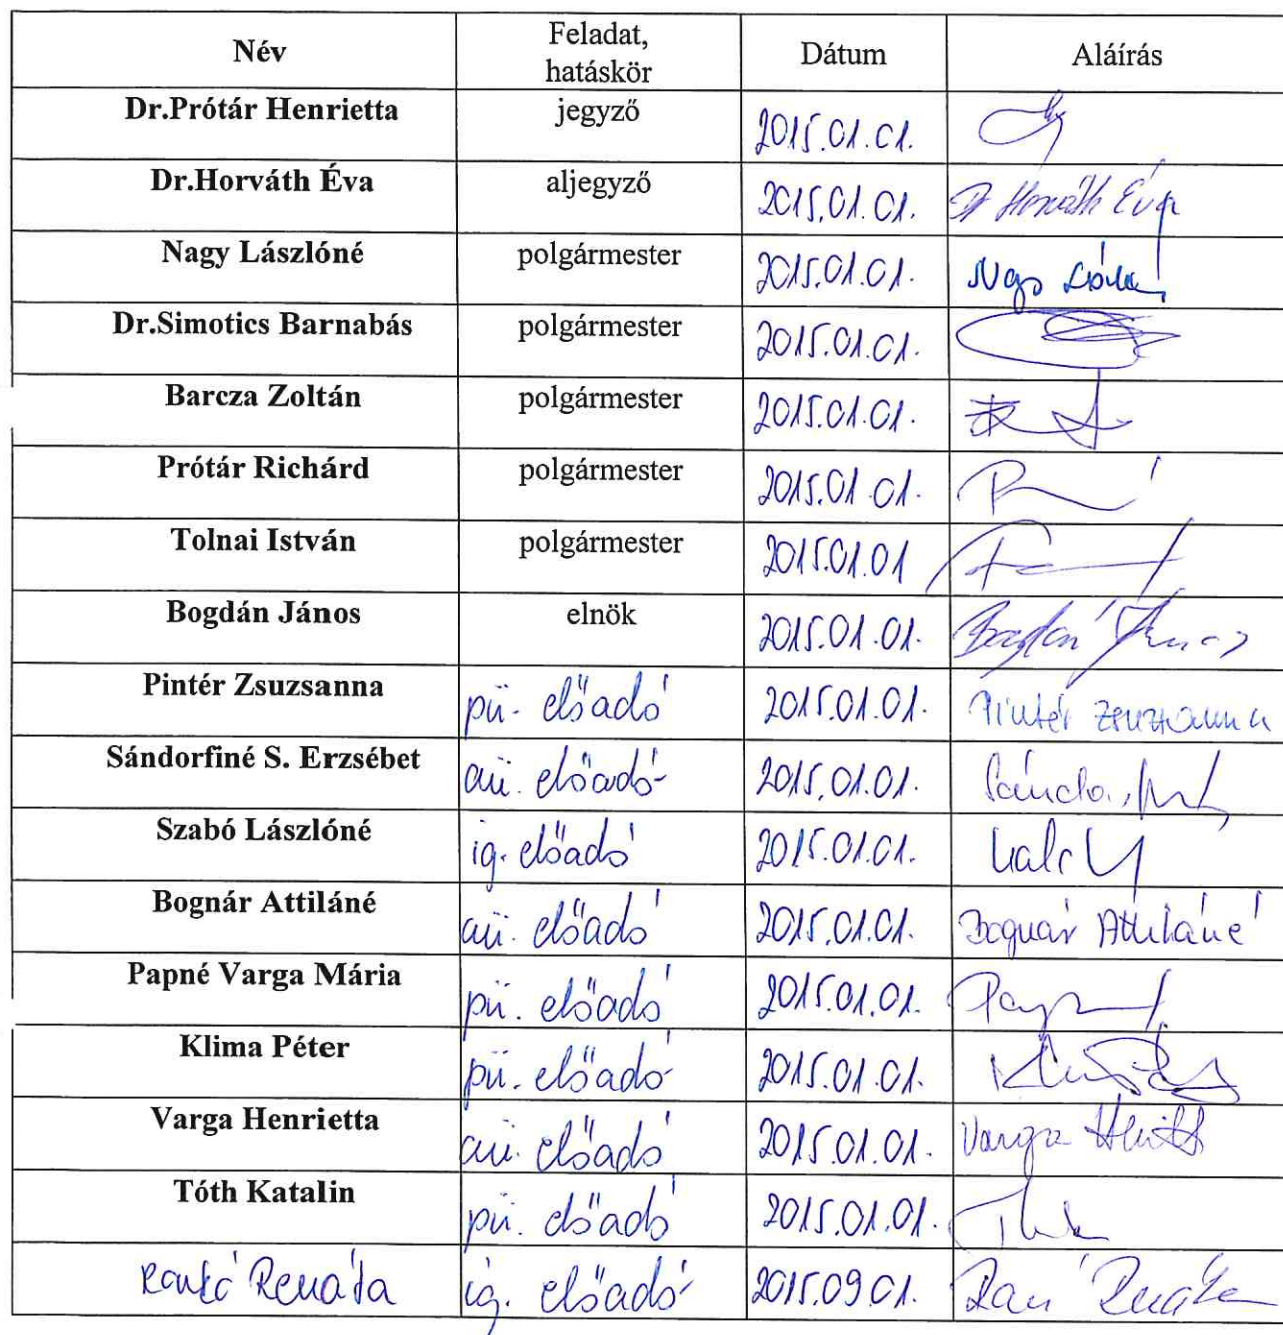 Név Feladat, hatáskör Dátum Aláírás
Dr.Prótár Henrietta jegyző 2015.01.01.
Dr.Horváth Éva aljegyző 2015.01.01. Dr Horváth Éva
Nagy Lászlóné polgármester 2015.01.01.
Dr.Simotics Barnabás polgármester 2015.01.01.
Barcza Zoltán polgármester 2015.01.01.
Prótár Richárd polgármester 2015.01.01.
Tolnai István polgármester 2015.01.01
Bogdán János elnök 2015.01.01. Bogdán János
Pintér Zsuzsanna pü. előadó 2015.01.01. Pintér Zsuzsanna
Sándorfiné S. Erzsébet aü. előadó 2015.01.01.
Szabó Lászlóné ig. előadó 2015.01.01.
Bognár Attiláné aü. előadó 2015.01.01. Bognár Attiláné
Papné Varga Mária pü. előadó 2015.01.01.
Klima Péter pü. előadó 2015.01.01.
Varga Henrietta aü. előadó 2015.01.01. Varga
Tóth Katalin pü. előadó 2015.01.01.
Renáta ig. előadó 2015.09.01. Renáta